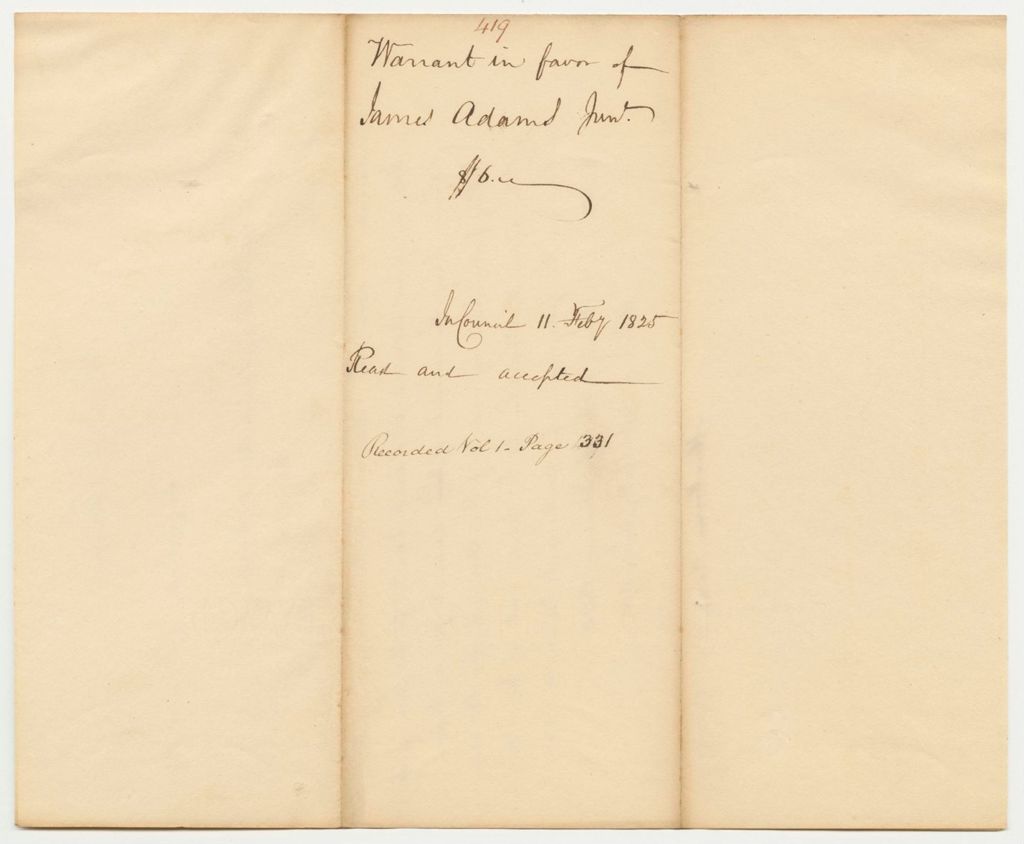 419
Warrant in favor of
James Adams Junr.
$6.00
In Council 11. Feby 1825
Read and accepted
Recorded Vol 1 - Page 331